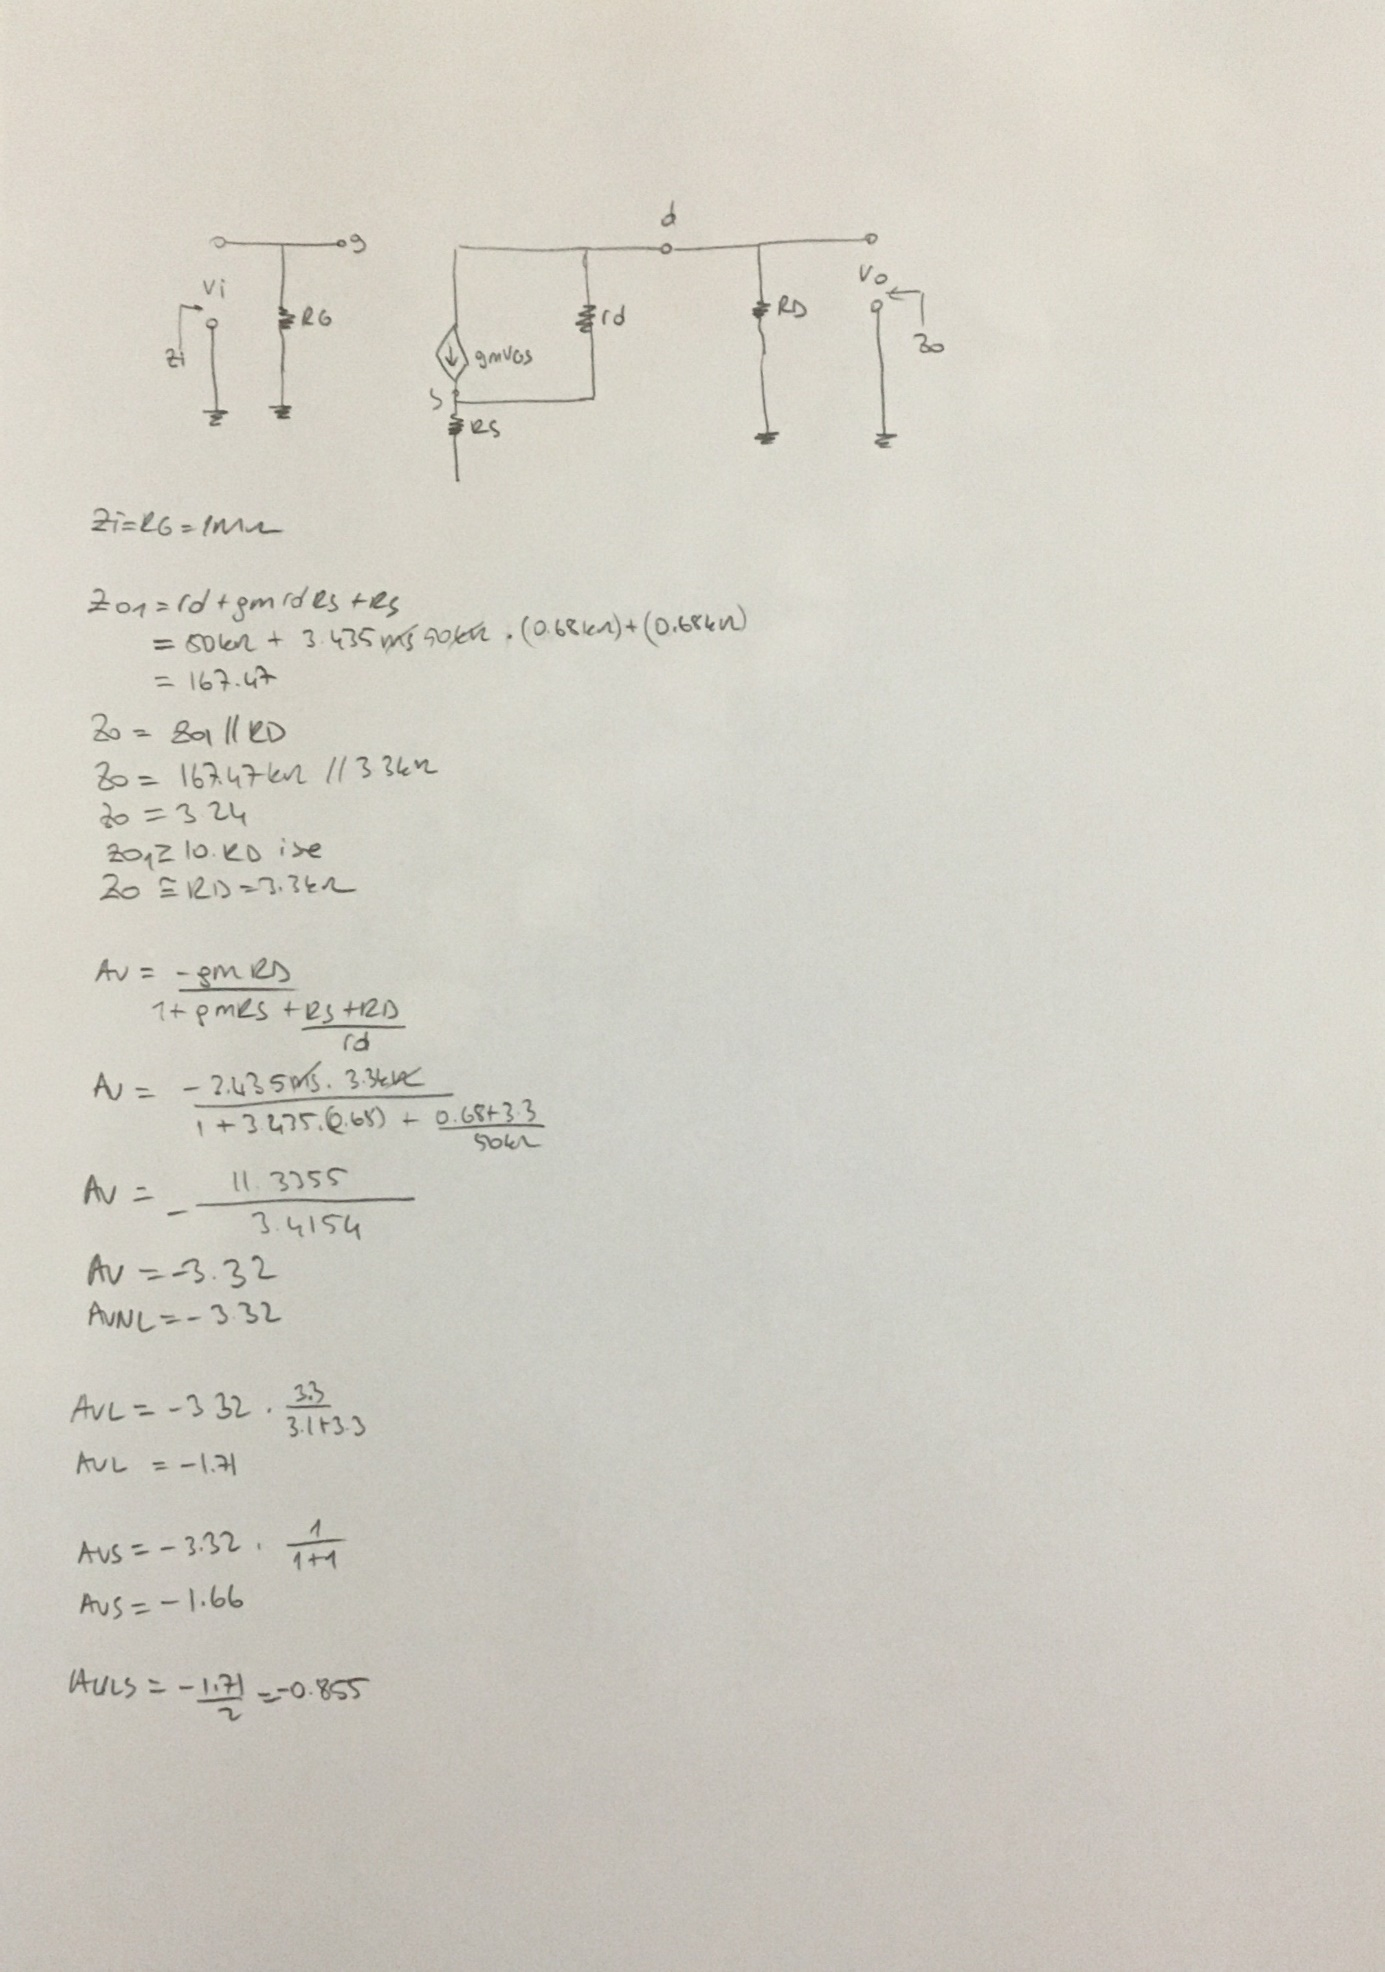 d
g
Vi
RG
Zi
gmVGS
rd
RD
Vo
Zo
S
RS
Zi=RG=1MΩ
Zo1=rd+gmrdRs+Rs
= 50kΩ + 3.435ms 50kΩ . (0.68kΩ)+(0.68kΩ)
= 167.47
Zo = Zo1 // RD
Zo = 167.47kΩ // 3.3kΩ
Zo = 3.24
Zo1≥10.RD ise
Zo ≅ RD=3.3kΩ
AV = -gmRD
1+gmRS+RS+RD
rd
AV = -3.435ms. 3.3kΩ
1+3.435.(0.68) + 0.68+3.3
50kΩ
AV = - 11.3355
3.4154
AV = -3.32
AVNL = -3.32
AVL = -3.32 . 3.3
3.1+3.3
AVL = -1.71
AVS = -3.32 . 1
1+1
AVS = -1.66
AVLS = -1.71 = -0.855
2